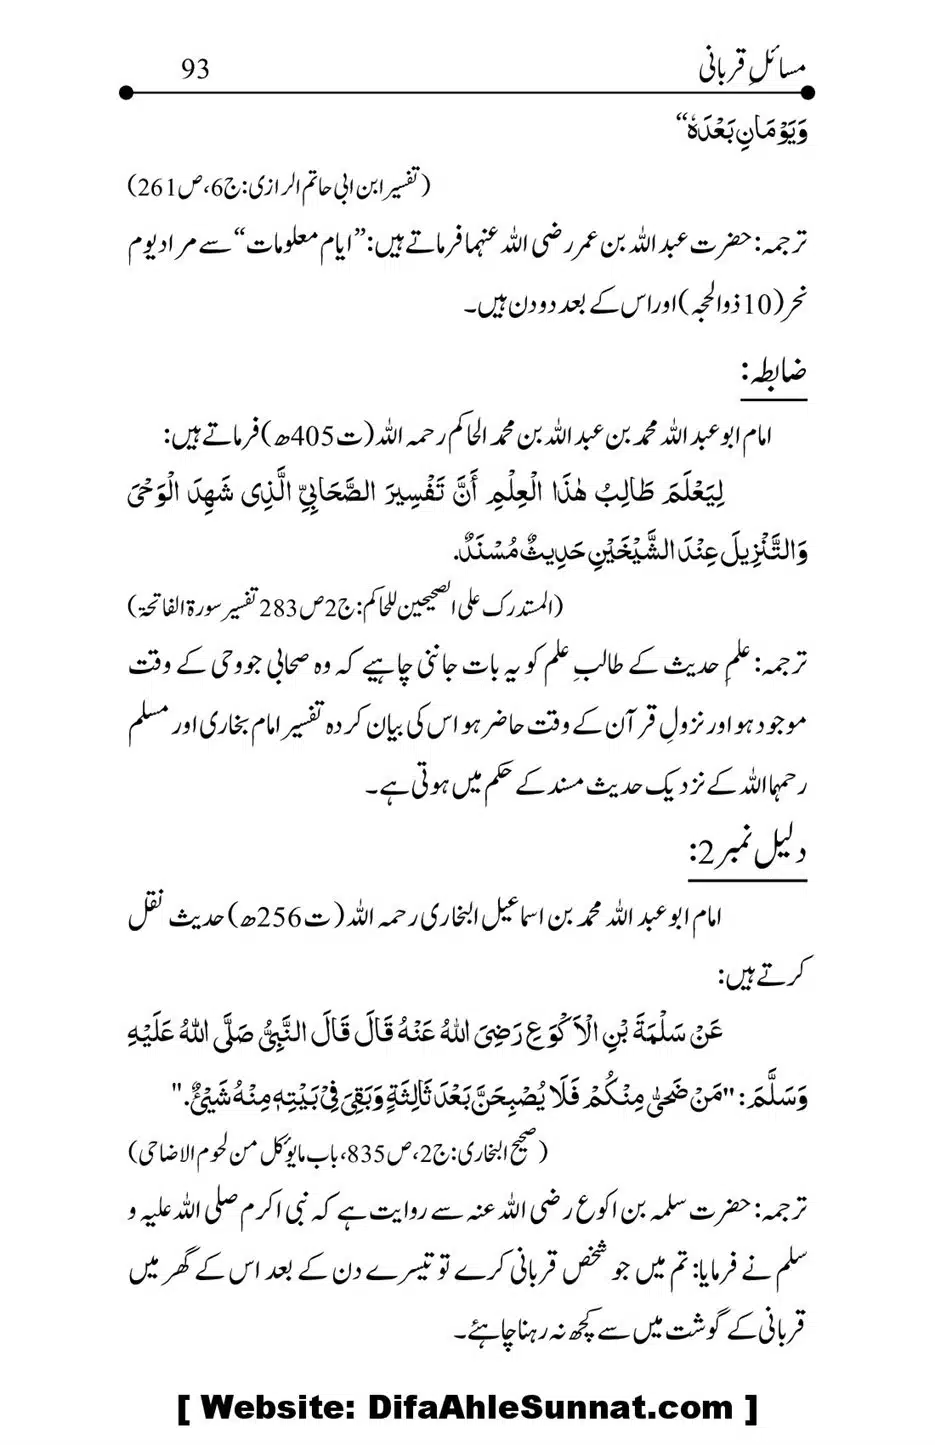 مسائلِ قربانی 93
وَيَوْمَانِ بَعْدَهٗ“
(تفسیر ابن ابی حاتم الرازی: ج6، ص261)
ترجمہ: حضرت عبد اللہ بن عمر رضی اللہ عنہما فرماتے ہیں: ”ایام معلومات“ سے مراد یوم
نحر (10 ذوالحجہ) اور اس کے بعد دو دن ہیں۔
ضابطہ:
امام ابو عبد اللہ محمد بن عبد اللہ بن محمد الحاکم رحمہ اللہ (ت405ھ) فرماتے ہیں:
لِيَعْلَمَ طَالِبُ هٰذَا الْعِلْمِ أَنَّ تَفْسِيرَ الصَّحَابِيِّ الَّذِى شَهِدَ الْوَحْىَ
وَالتَّنْزِيلَ عِنْدَ الشَّيْخَيْنِ حَدِيثٌ مُسْنَدٌ.
(المستدرک علی الصحیحین للحاکم: ج2ص283 تفسیر سورۃ الفاتحۃ)
ترجمہ: علمِ حدیث کے طالبِ علم کو یہ بات جاننی چاہیے کہ وہ صحابی جو وحی کے وقت
موجود ہو اور نزولِ قرآن کے وقت حاضر ہو اس کی بیان کردہ تفسیر امام بخاری اور مسلم
رحمہا اللہ کے نزدیک حدیث مسند کے حکم میں ہوتی ہے۔
دلیل نمبر 2:
امام ابو عبد اللہ محمد بن اسماعیل البخاری رحمہ اللہ (ت256ھ) حدیث نقل
کرتے ہیں:
عَنْ سَلْمَةَ بْنِ الْاَكْوَعِ رَضِىَ اللهُ عَنْهُ قَالَ قَالَ النَّبِىُّ صَلَّى اللهُ عَلَيْهِ
وَسَلَّمَ: "مَنْ ضَحّٰى مِنْكُمْ فَلَا يُصْبِحَنَّ بَعْدَ ثَالِثَةٍ وَبَقِىَ فِىْ بَيْتِهٖ مِنْهُ شَيْئٌ."
(صحیح البخاری: ج2، ص835، باب مایؤکل من لحوم الاضاحی)
ترجمہ: حضرت سلمہ بن اکوع رضی اللہ عنہ سے روایت ہے کہ نبی اکرم صلی اللہ علیہ و
سلم نے فرمایا: تم میں جو شخص قربانی کرے تو تیسرے دن کے بعد اس کے گھر میں
قربانی کے گوشت میں سے کچھ نہ رہنا چاہئے۔
[ Website: DifaAhleSunnat.com ]